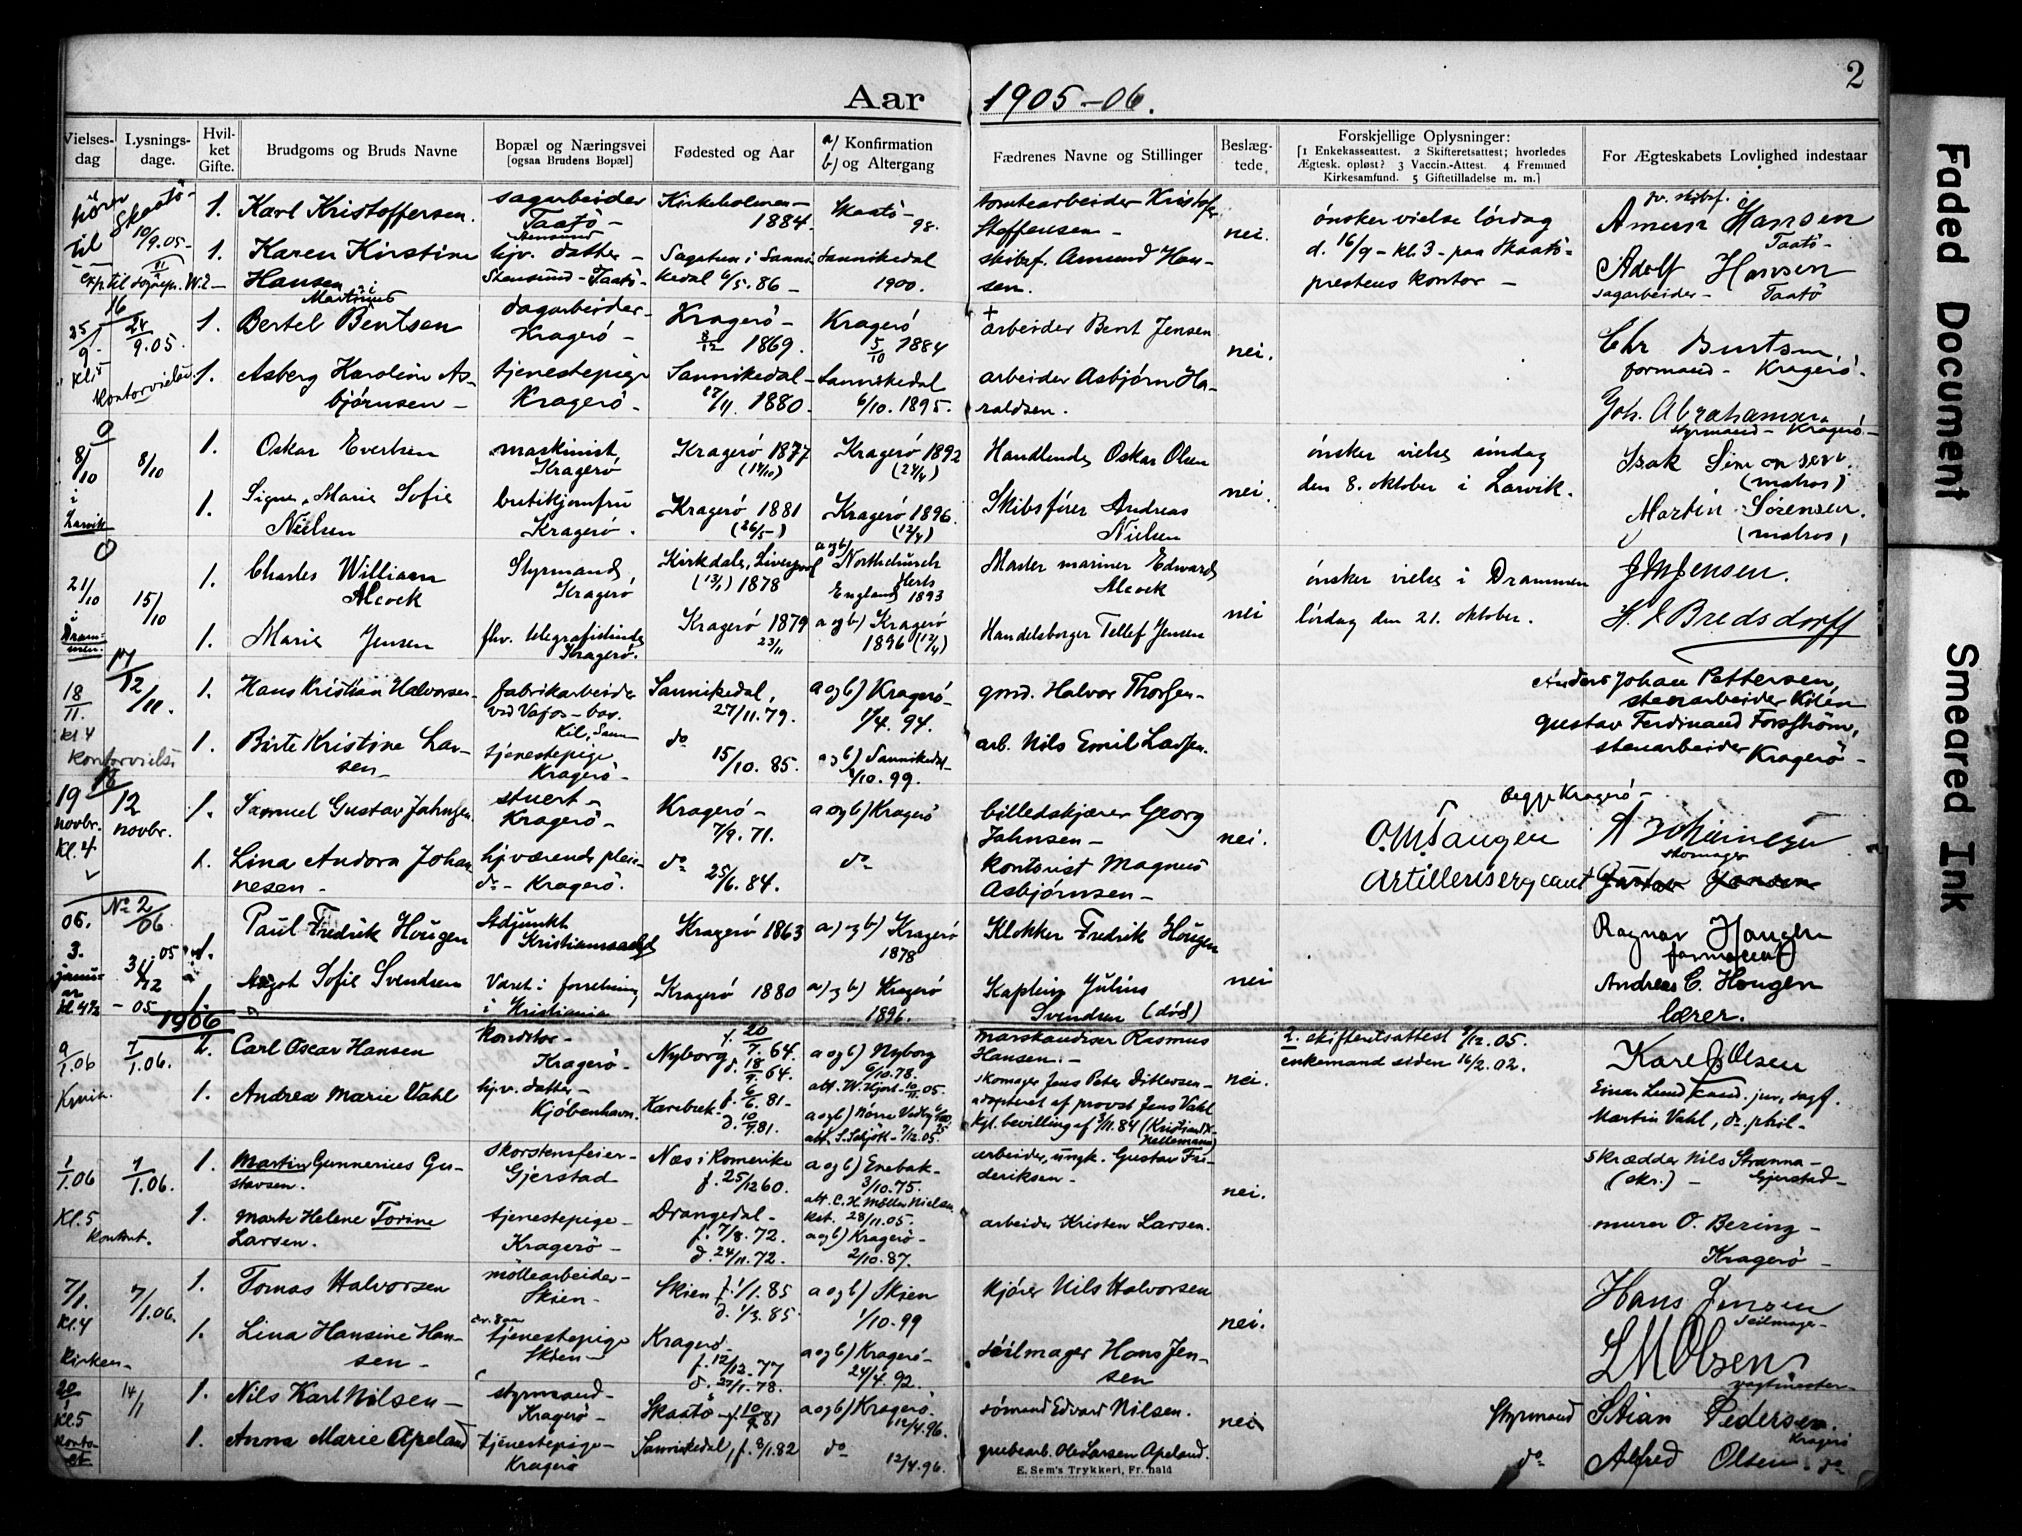 2
Aar 1905-06.
Vielses-dag
Lysnings-dage.
Hvil-ket Gifte.
Brudgoms og Bruds Navne
Bopæl og Næringsvei
[ogsaa Brudens Bopæl]
Fødested og Aar
a) Konfirmation
b) og Altergang
Fædrenes Navne og Stillinger
Beslæg-tede.
Forskjellige Oplysninger:
[1 Enkekasseattest. 2 Skifteretsattest; hvorledes
Ægtesk. opløst? 3 Vaccin.-Attest. 4 Fremmed
Kirkesamfund. 5 Giftetilladelse m. m.]
For Ægteskabets Lovlighed indestaar
hører til Skaatø-
10/9.05-
1. Karl Kristoffersen.
sagarbeider
Taatø-
Kirkeholmen-
1884.
Skaatø-
98.
tomtearbeider Kristofer
Steffensen-
nei.
ønsker vielse lørdag
d. 16/9- kl. 3- paa Skaatø-
prestens kontor-
fv. skibsf.
Amund Hansen
Taatø-
1. Karen Kirstine
Hansen
hjv. datter-
Stensund-Taatø-
Sannikedal 6/5.86-
Sannikedal
1900.
skibsf. Amund Han-
sen.
Adolf Hansen
sagarbeider- Taatø
16
25/9-
Kl. 5
Kontorvielse
24/9.05.
1. Bertel Martinus Bentsen
dagarbeider-
Kragerø-
Kragerø-
8/12 1869.
Kragerø
5/10 1884
arbeider Bent Jensen
nei.
Chr Bentsen,
formand- Kragerø.
1. Asberg Karoline As-
bjørnsen-
tjenestepige
Kragerø-
Sannikedal-
1880.
Sannikedal
6/10.1895.
arbeider Asbjørn Ha-
raldsen.
Joh. Abrahamsen
styrmand- Kragerø-
0
8/10
i
Larvik
8/10
1. Oskar Evertsen
maskinist,
Kragerø
Kragerø 1877
(14/10)
Kragerø 1892
(24/4)
Handlende Oskar Olsen
nei.
ønsker vielse søndag
den 8. oktober i Larvik.
Isak Simonsen.
(matros)
1. Signe Marie Sofie
Nielsen
butikjomfru
Kragerø.
Kragerø 1881
(26/5)
Kragerø 1896.
(12/4)
Skibsfører Andreas
Nielsen
Martin Sørensen.
(matros)
0
21/10
i
Drammen.
15/10
1. Charles William
Alcock
Styrmand,
Kragerø
Kirkdale, Liverpool
1878
a og b) Northchurch
Herts
England 1893
Master mariner Edward
Alcock
nei
ønsker vielse i Drammen
lørdag den 21. oktober.
J M Jensen.
1. Marie Jensen
fhv. telegrafistinde
Kragerø.
Kragerø 1879
23/11
a og b) Kragerø
1896 (12/4)
Handelsborger Tellef Jensen
H. J Bredsdorff
17
18/11.
kl. 4
kontorvielse
12/11.
1. Hans Kristian Halvorsen-
fabrikarbeider
ved Vafos-
Kil, Sann
Sannikedal,
27/11.79.
a og b) Kragerø-
94.
gmd. Halvor Thorsen-
Anders Johan Pettersen,
stenarbeider Kilen
1. Birte Kristine Lar-
sen-
tjenestepige
Kragerø-
do
15/10.85.
a og b) Sannikedal-
/10.99.
arb. Nils Emil Larsen.
Gustav Ferdinand Forsstrøm,
stenarbeider Kragerø-
18
19
novbr.
Kl. 4
12
novbr.
1. Samuel Gustav Jahnsen
stuert-
Kragerø-
Kragerø-
7/9.71.
a og b) Kragerø
billedskjærer Georg
Jahnsen-
nei.
Begge Kragerø-
O.M. Tangen
Artillerisergeant
skomager
1. Lina Andora Johan
nesen-
Kragerø.
do
25/6.84.
do
kontorist Magnus
Asbjørnsen-
Gustav Jansen
No 2
06
06.
3.
januar
kl. 4½
31/12
-05
1. Paul Fredrik Hougen
Adjunkt
Kristianssand
Kragerø 1863
a) og b) Kragerø
1878
Klokker Fredrik Hougen
nei
Ragnar Hougen
formand
1. Aagot Sofie Svendsen
Været i forretning
i Kristiania
Kragerø 1880
a) og b) Kragerø
1896.
Kaptein Julius
Svendsen (død)
Andreas C. Hougen
lærer.
1906
9/1.06
7/1.06.
2. Carl Oscar Hansen
Konditor-
Kragerø-
Nyborg
f. 20/7.64.
d. 18/9.64.
a og b) Nyborg
6/10.78.
marskandiser Rasmus
Hansen.-
nei.
2. skifteretsattest /12.05.
enkemand siden 16/2.02.
Karl Olsen
1. Andrea Marie Vahl
hjv. datter-
Kjøbenhavn.
Karebek-
f. 6/6.81-
d. 10/7.81.
skomager Jens Peter Ditlevsen-
adopteret af provst Jens Vahl
Einar Lund kand. jur., sagf.
Martin Vahl, dr. phil-
1/1.06
Kl. 5
Kontort.
7/1.06.
1. Martin Gunnerius Gu-
stavsen.
skorstensfeier-
Gjerstad
Næs i Romerike
f. 25/12 60.
a og b) Enebak-
3/10.75.
28/11.05.
arbeider, ungk. Gustav Fre-
deriksen-
nei.
skrædder Nils Stranna-
Gjerstad-
1. Marte Helene Torine
Larsen.
tjenestepige-
Kragerø-
Drangedal-
f. 7/8.72.
d. 24/11.72.
a og b) Kragerø-
2/10.87.
arbeider Kristen Larsen.
murer O. Bering-
Kragerø-
7/1.
Kl. 4
Kirken-
7/1.06.
1. Tomas Halvorsen
møllearbeider-
Skien-
Skien f. 1/1.85
d. 1/3.85.
a og b) Skien
1/10.99
kjører Nils Halvorsen
nei.
Hans Jensen
Seilmager-
1. Lina Hansine Han-
sen-
tjenestepige
Skien-
Kragerø-
f. 12/12.77
d. 27/1.78.
a og b) Kragerø-
24/4.92.
seilmager Hans Jen-
sen
L M Olsen
vagtmester-
20/1
Kl. 5
14/1
1. Nils Karl Nilsen-
styrmand-
Kragerø-
Skaatø-
a og b) Kragerø.
12/4.96.
sømand Edvard Nilsen.
nei
Styrmand
Stian Pedersen.
Kragerø
1. Anna Marie Apeland
tjenestepige-
Kragerø
Sannikedal, f. 8/1.82
do
12/4.96.
grubearb. Ole Larsen Apeland.
do
Alfred Olsen do
E. Sem's Trykkeri, Fr.hald
Faded Document
Smeared Ink